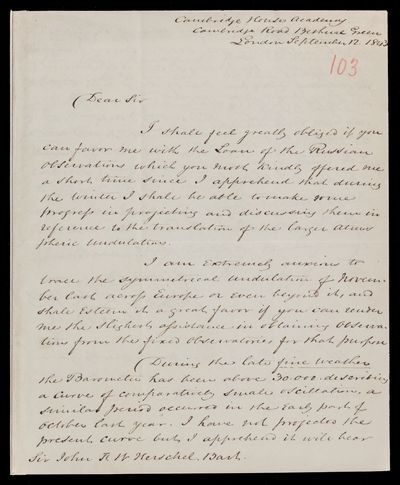 Cambridge House Academy
Cambridge Road Bethnal Green
London September 12. 1843
103
Dear Sir
I shall feel greatly obliged if you
can favor me with the Loan of the Russian
Observations which you most kindly offered me
a short time since I apprehend that during
the Winter I shall be able to make some
progress in projecting and discussing them in
reference to the translation of the larger Atmos
pheric undulations.
I am extremely anxious to
trace the symmetrical undulation of Novem-
ber last across Europe or even beyond it, and
shall Esteem it a great favor if you can render
me the slightest assistance in obtaining Observa-
tions from the fixed Observatories for that purpose
During the late fine weather
the Barometer has been above 30.000 describing
a curve of comparatively small oscillation, a
similar period occurred in the early part of
October last year. I have not projected the
present curve but I apprehend it will bear
Sir John F. W Herschel, Bart.